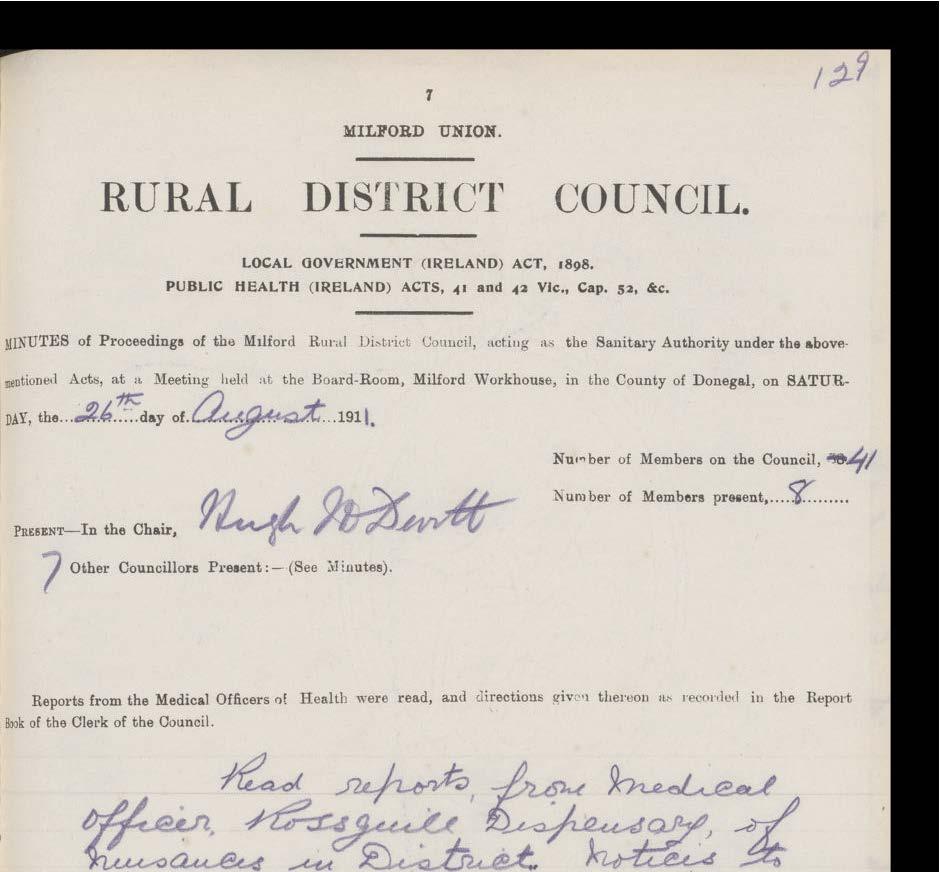 129
7
MILFORD UNION.
RURAL DISTRICT COUNCIL.
LOCAL GOVERNMENT (IRELAND) ACT, 1898.
PUBLIC HEALTH (IRELAND) ACTS, 41 and 42 Vic., Cap. 52, &c.
MINUTES of Proceedings of the Milford Rural District Council, acting as the Sanitary Authority under the above-
mentioned Acts, at a Meeting held at the Board-Room, Milford Workhouse, in the County of Donegal, on SATUR-
DAY, the...26th.....day of.August...1911.
Number of Members on the Council, 41
Number of Members present,....8.........
PRESENT—In the Chair, Hugh McDevitt
7 Other Councillors Present:—(See Minutes).
Reports from the Medical Officers of Health were read, and directions given thereon as recorded in the Report
Book of the Clerk of the Council.
Read reports, from Medical
Officer, Rossguill Dispensary, of
Nuisances in District. Notices to